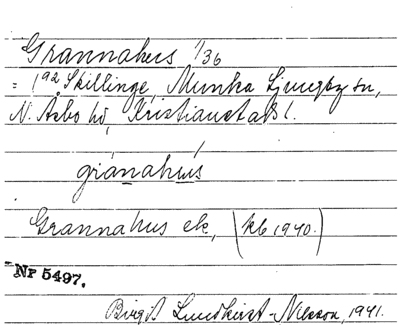 Grannahus 1/36
= 1⁹² Skillinge, Munka Ljungby sn,
N. Åsbo hd, Kristianstads l.
gránahu̲s
Grannahus ek, (kb 1940.)
Nr 5497.
Birgit Lundkvist-Nilsson, 1941.